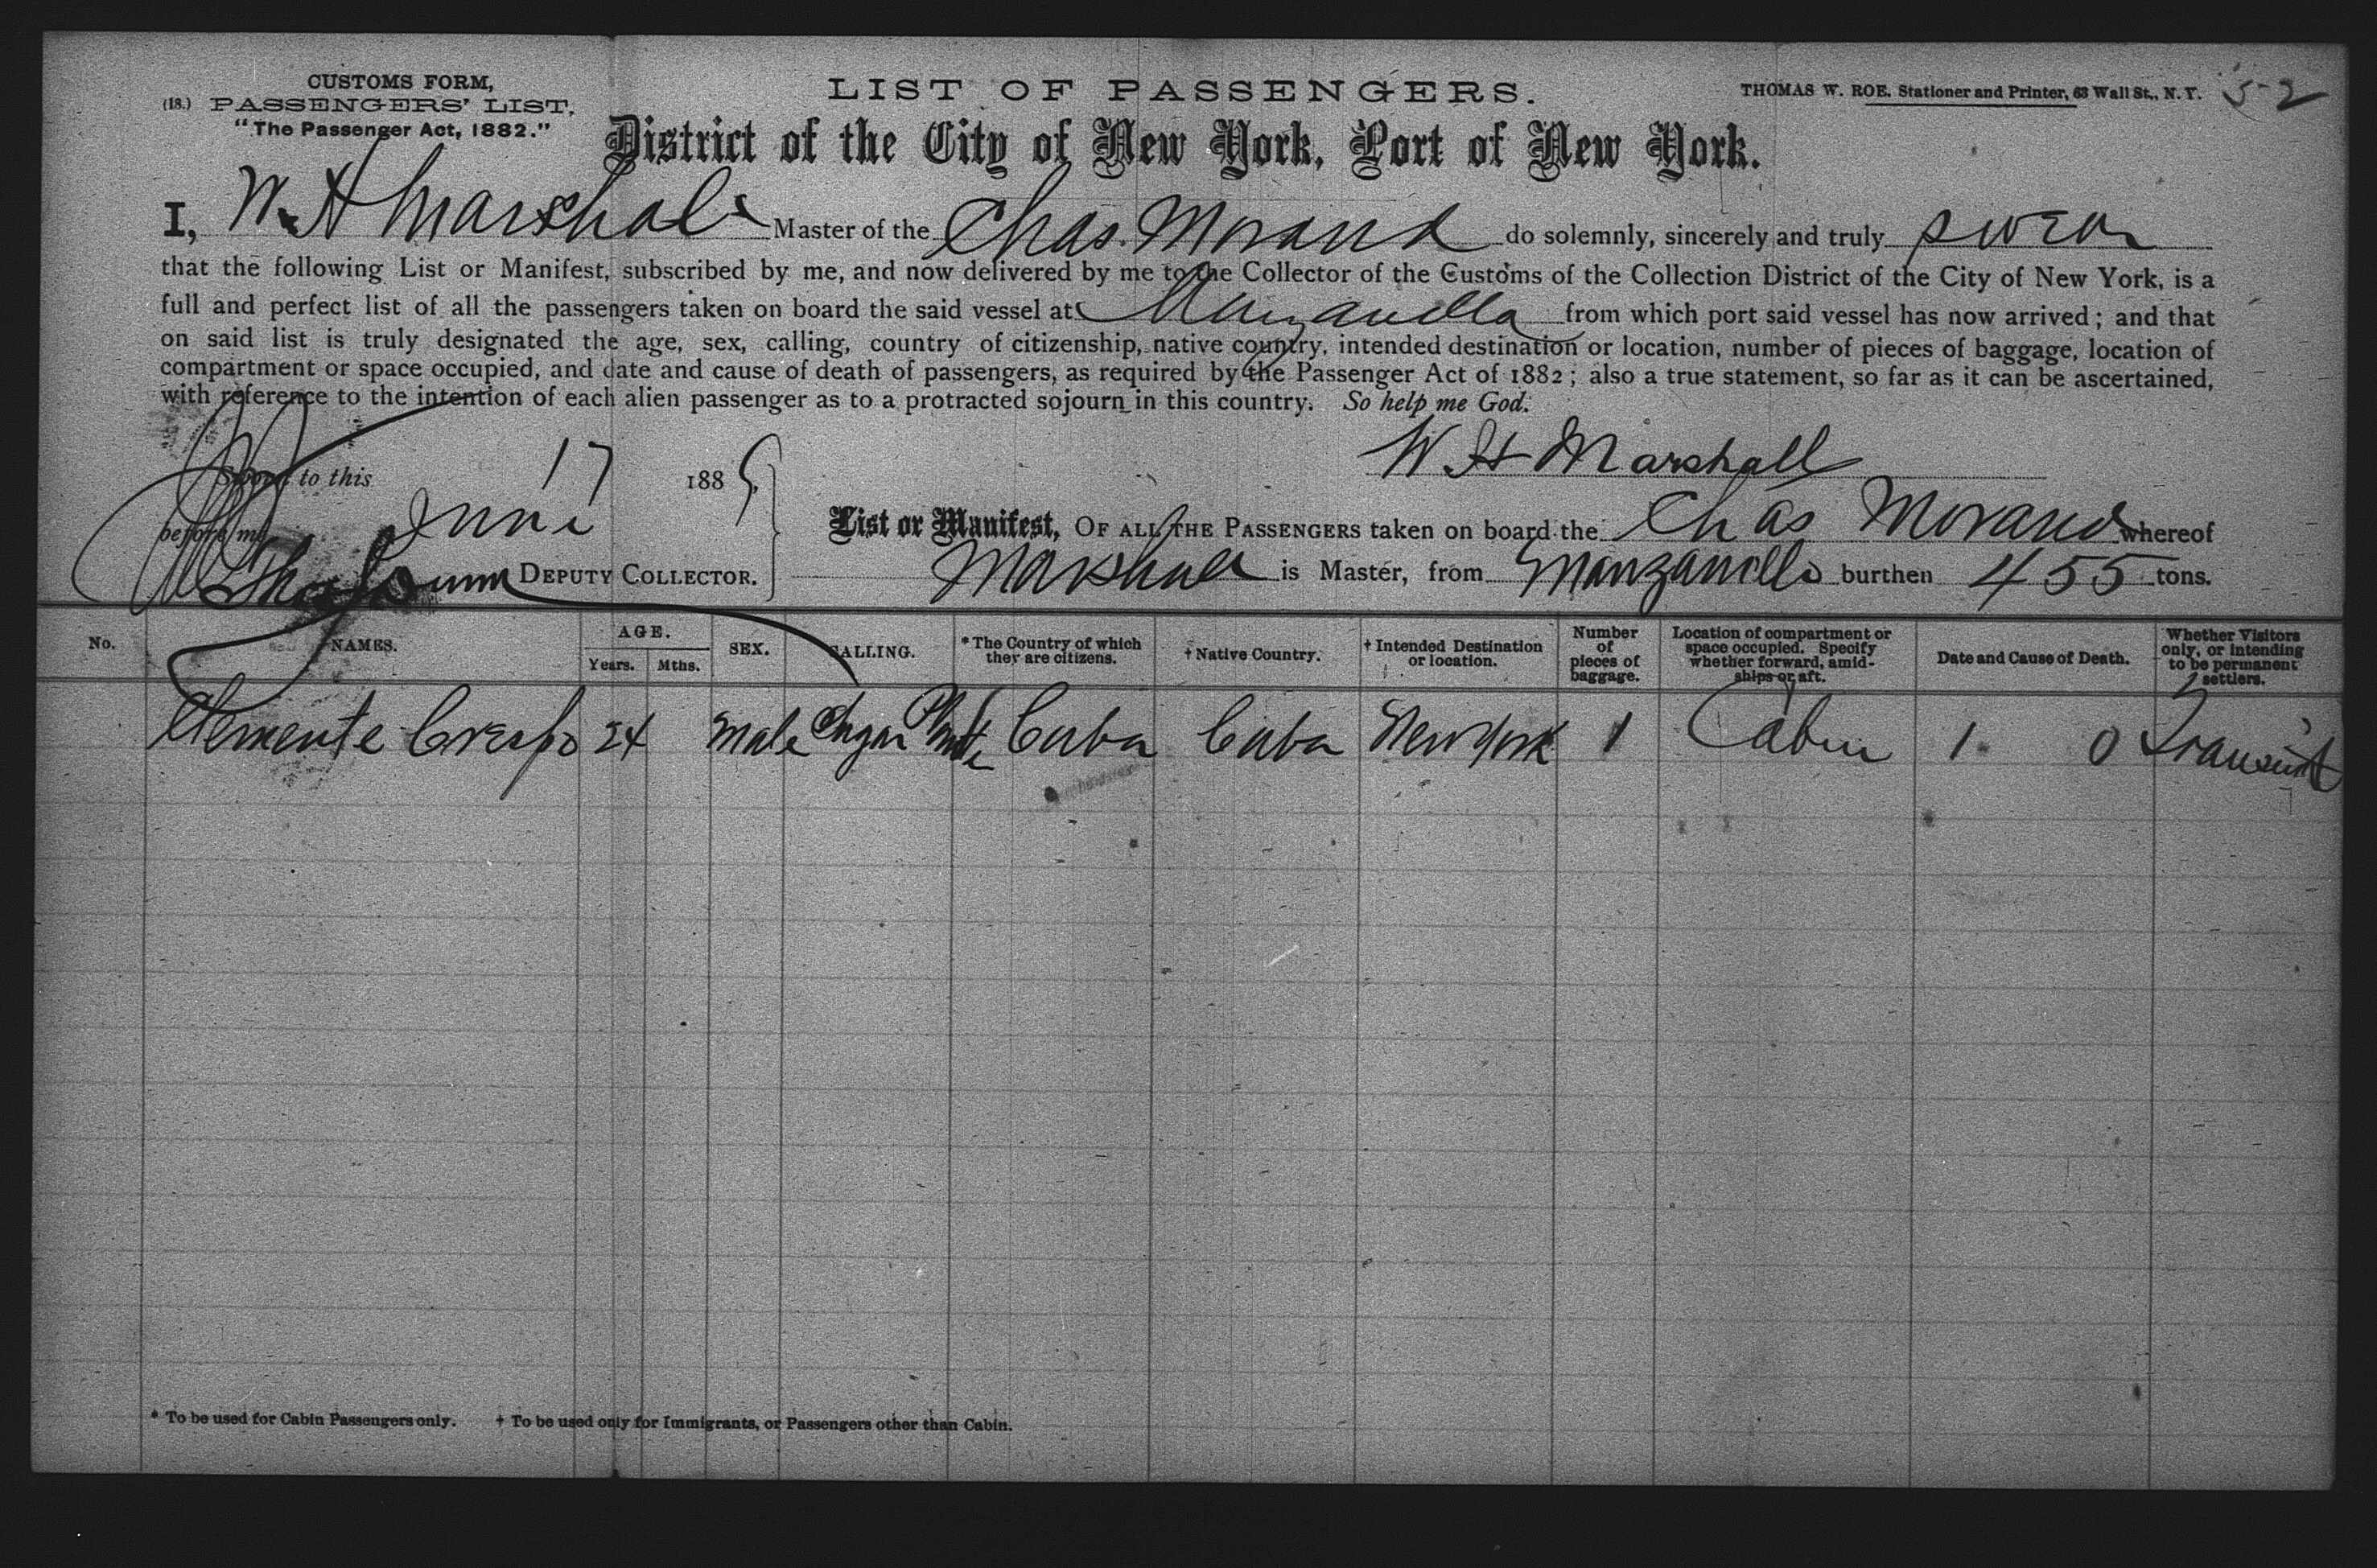 CUSTOMS FORM,
(18.) PASSENGERS' LIST,
"The Passenger Act, 1882."
LIST OF PASSENGERS.
THOMAS W. ROE. Stationer and Printer, 63 Wall St., N. Y.
52
District of the City of New York, Port of New York.
I, W. H Marshall Master of the Chas. Morand do solemnly, sincerely and truly swear
that the following List or Manifest, subscribed by me, and now delivered by me to the Collector of the Customs of the Collection District of the City of New York, is a
full and perfect list of all the passengers taken on board the said vessel at Manzanilla from which port said vessel has now arrived; and that
on said list is truly designated the age, sex, calling, country of citizenship, native country, intended destination or location, number of pieces of baggage, location of
compartment or space occupied, and date and cause of death of passengers, as required by the Passenger Act of 1882; also a true statement, so far as it can be ascertained,
with reference to the intention of each alien passenger as to a protracted sojourn in this country. So help me God.
W H Marshall
Sworn to this 17 1885
before me June
Thos Dunn DEPUTY COLLECTOR.
List or Manifest, OF ALL THE PASSENGERS taken on board the Chas Morand whereof
Marshall is Master, from Manzanillo burthen 455 tons.
No. NAMES. AGE. Years. Mths. SEX. CALLING. * The Country of which they are citizens. † Native Country. † Intended Destination or location. Number of pieces of baggage. Location of compartment or space occupied. Specify whether forward, amidships or aft. Date and Cause of Death. Whether Visitors only, or intending to be permanent settlers.
Clemente Crespo 24 Male Sugar Cuba Cuba New York 1 Cabin 1 0 Transient
* To be used for Cabin Passengers only. † To be used only for Immigrants, or Passengers other than Cabin.